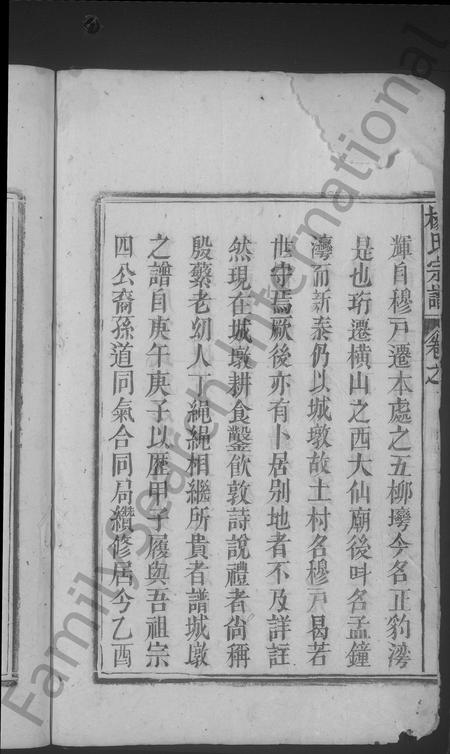 楊氏宗譜 卷之
輝自穆戸遷本處之五柳塆今名正豹灣
是也珩遷橫山之西大仙廟後呌名孟鐘
灣而新泰仍以城墩故土村名穆戸曷若
世守焉厥後亦有卜居别地者不及詳註
然現在城墩耕食鑿飲敦詩說禮者尙稱
殷蘩老幼人丁繩繩相繼所貴者譜城墩
之譜自庚午庚子以歷甲子履與吾祖宗
四公裔孫道同氣合同局纘修居兮乙酉
FamilySearch International